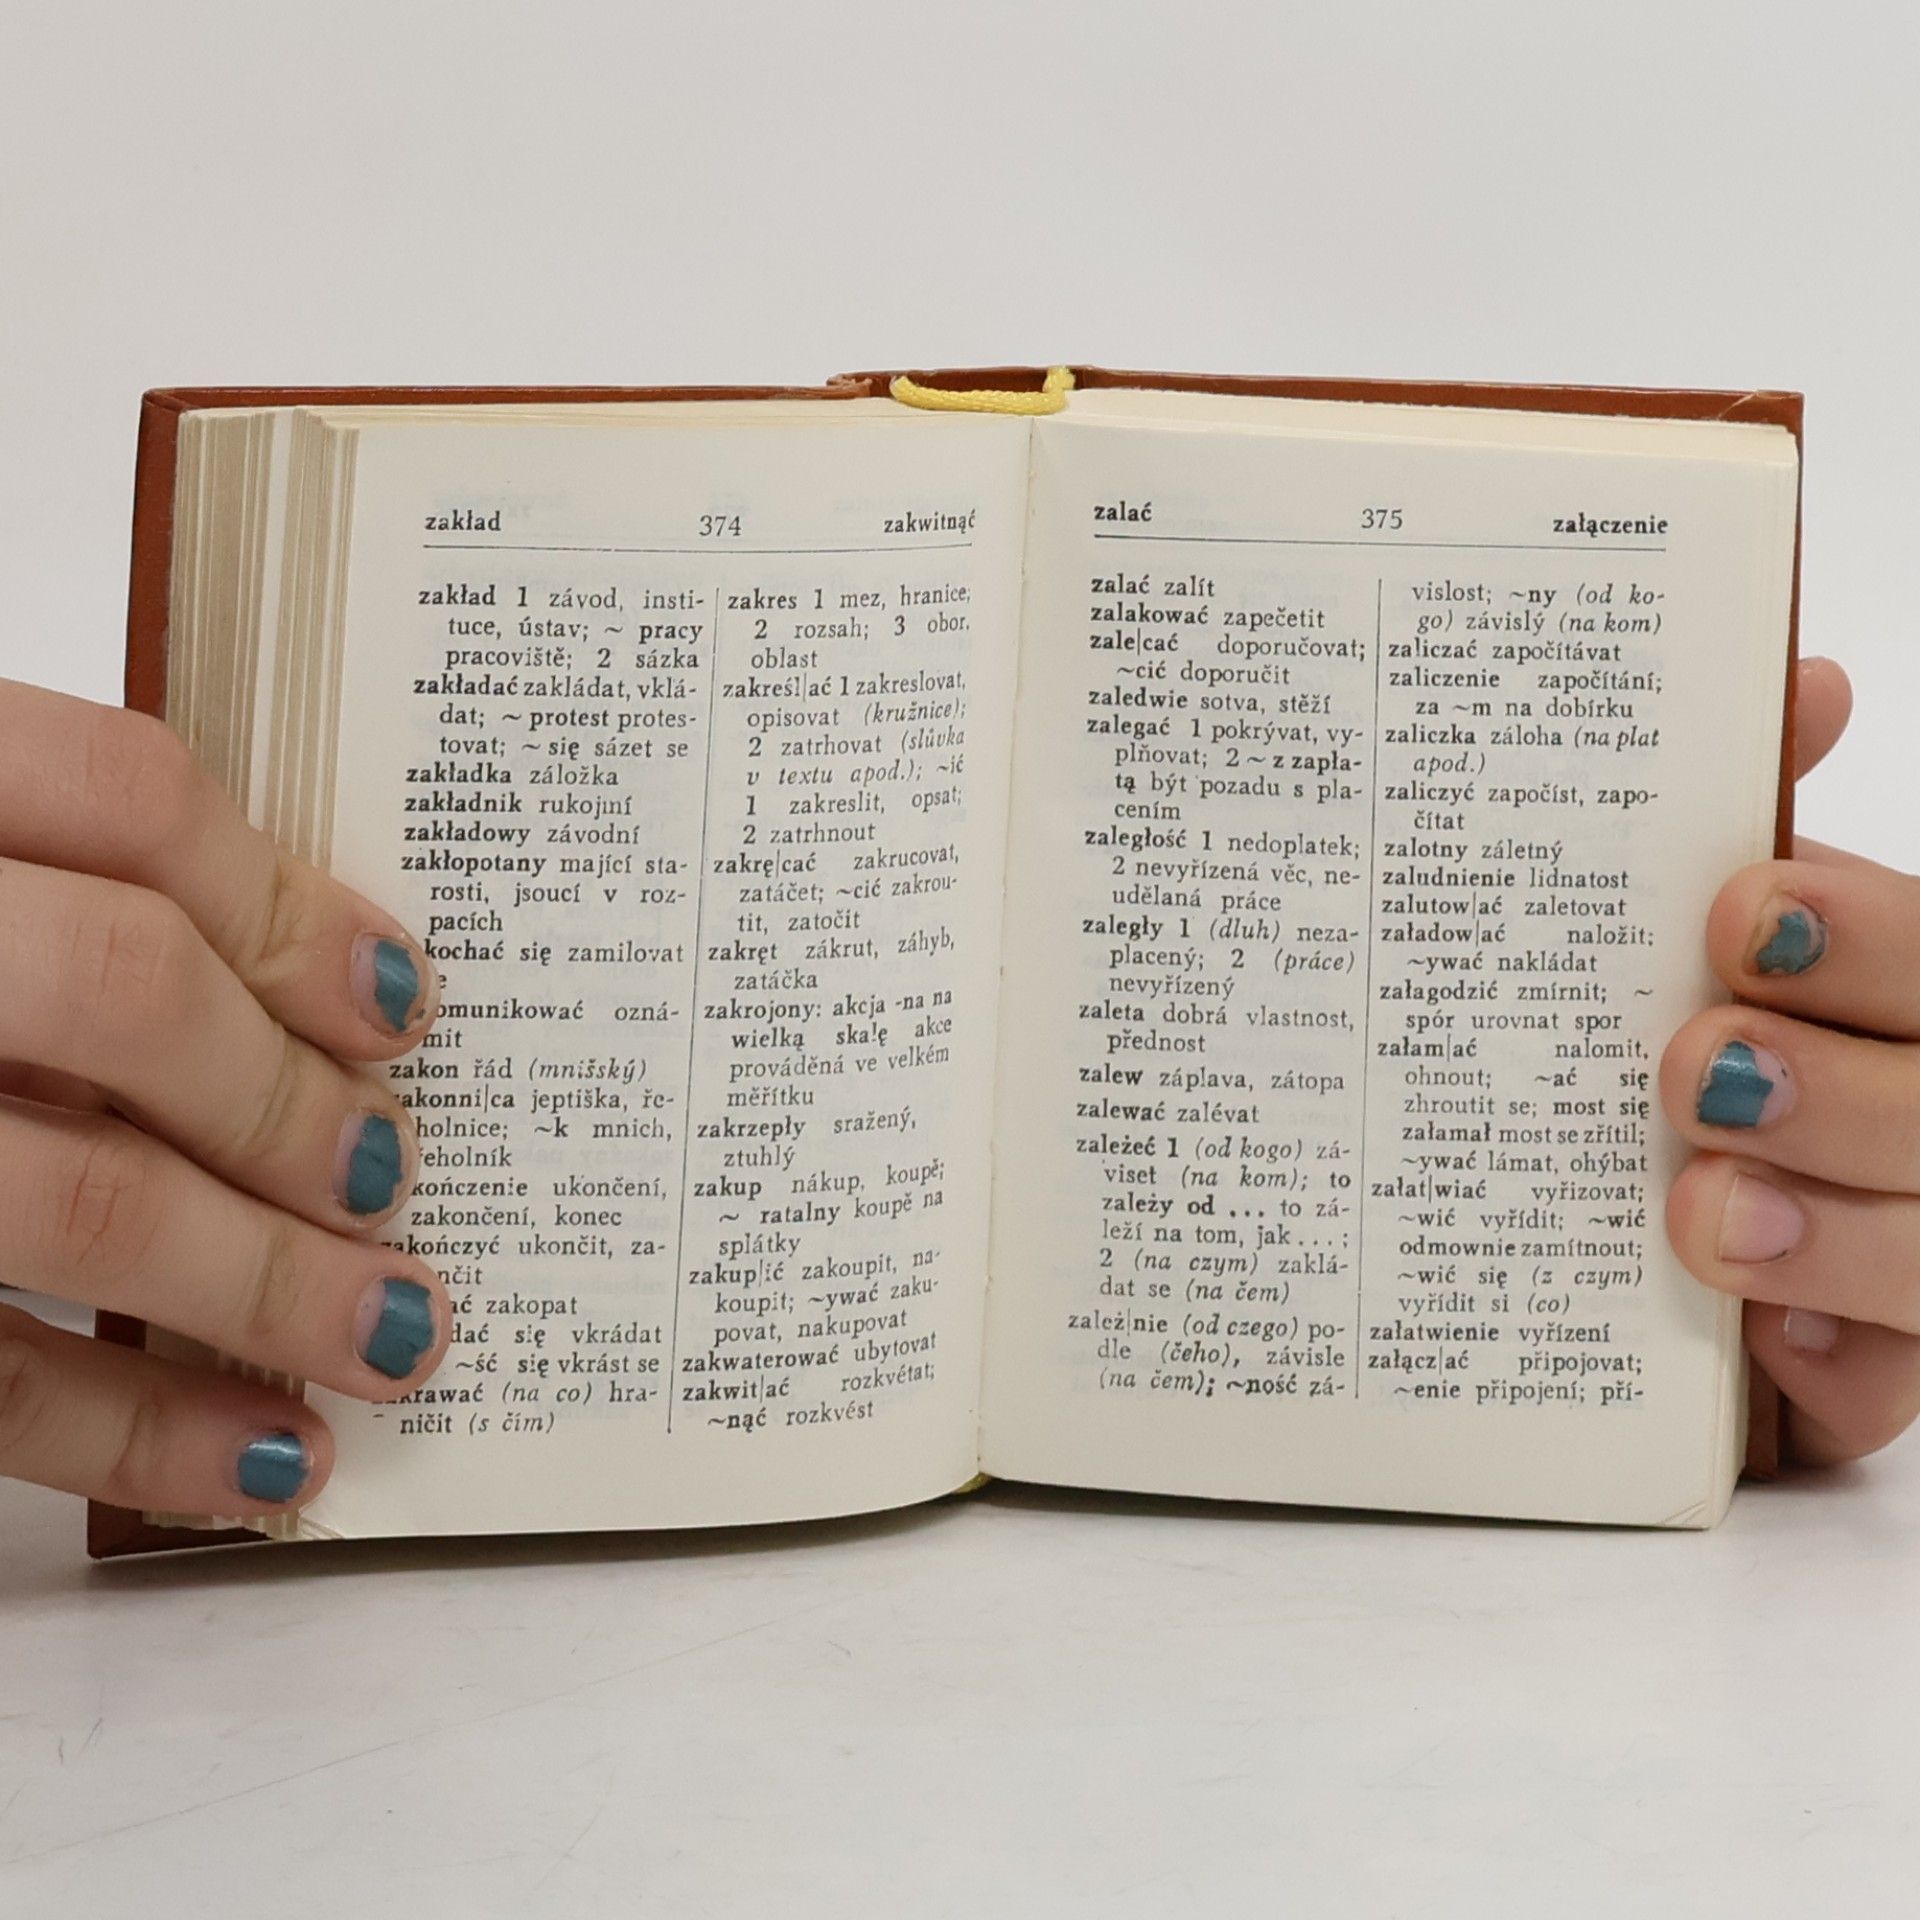 zakład 374 zakwitnąć
zakład 1 závod, insti-
tuce, ústav; ~ pracy
pracoviště; 2 sázka
zakładać zakládat, vklá-
dat; ~ protest protes-
tovat; ~ się sázet se
zakładka záložka
zakładnik rukojmí
zakładowy závodní
zakłopotany mající sta-
rosti, jsoucí v roz-
pacích
kochać się zamilovat
e
omunikować ozná-
mit
zakon řád (mnišský)
akonni|ca jeptiška, ře-
holnice; ~k mnich,
řeholník
kończenie ukončení,
zakončení, konec
akończyć ukončit, za-
nčit
ać zakopat
dać się vkrádat
~ść się vkrást se
krawać (na co) hra-
ničit (s čím)
zakres 1 mez, hranice;
2 rozsah; 3 obor,
oblast
zakreśl|ać 1 zakreslovat,
opisovat (kružnice);
2 zatrhovat (slůvka
v textu apod.); ~ić
1 zakreslit, opsat;
2 zatrhnout
zakrę|cać zakrucovat,
zatáčet; ~cić zakrou-
tit, zatočit
zakręt zákrut, záhyb,
zatáčka
zakrojony: akcja -na na
wielką skalę akce
prováděná ve velkém
měřítku
zakrzepły sražený,
ztuhlý
zakup nákup, koupě;
~ ratalny koupě na
splátky
zakup|ić zakoupit, na-
koupit; ~ywać zaku-
povat, nakupovat
zakwaterować ubytovat
zakwit|ać rozkvétat;
~nąć rozkvést
zalać 375 załączenie
zalać zalít
zalakować zapečetit
zale|cać doporučovat;
~cić doporučit
zaledwie sotva, stěží
zalegać 1 pokrývat, vy-
plňovat; 2 ~ z zapła-
tą být pozadu s pla-
cením
zaległość 1 nedoplatek;
2 nevyřízená věc, ne-
udělaná práce
zaległy 1 (dluh) neza-
placený; 2 (práce)
nevyřízený
zaleta dobrá vlastnost,
přednost
zalew záplava, zátopa
zalewać zalévat
zależeć 1 (od kogo) zá-
viset (na kom); to
zależy od ... to zá-
leží na tom, jak ...;
2 (na czym) zaklá-
dat se (na čem)
zależ|nie (od czego) po-
dle (čeho), závisle
(na čem); ~ność zá-
vislost; ~ny (od ko-
go) závislý (na kom)
zaliczać započítávat
zaliczenie započítání;
za ~m na dobírku
zaliczka záloha (na plat
apod.)
zaliczyć započíst, zapo-
čítat
zalotny záletný
zaludnienie lidnatost
zalutow|ać zaletovat
załadow|ać naložit;
~ywać nakládat
załagodzić zmírnit; ~
spór urovnat spor
załam|ać nalomit,
ohnout; ~ać się
zhroutit se; most się
załamał most se zřítil;
~ywać lámat, ohýbat
załat|wiać vyřizovat;
~wić vyřídit; ~wić
odmownie zamítnout;
~wić się (z czym)
vyřídit si (co)
załatwienie vyřízení
załącz|ać připojovat;
~enie připojení; pří-